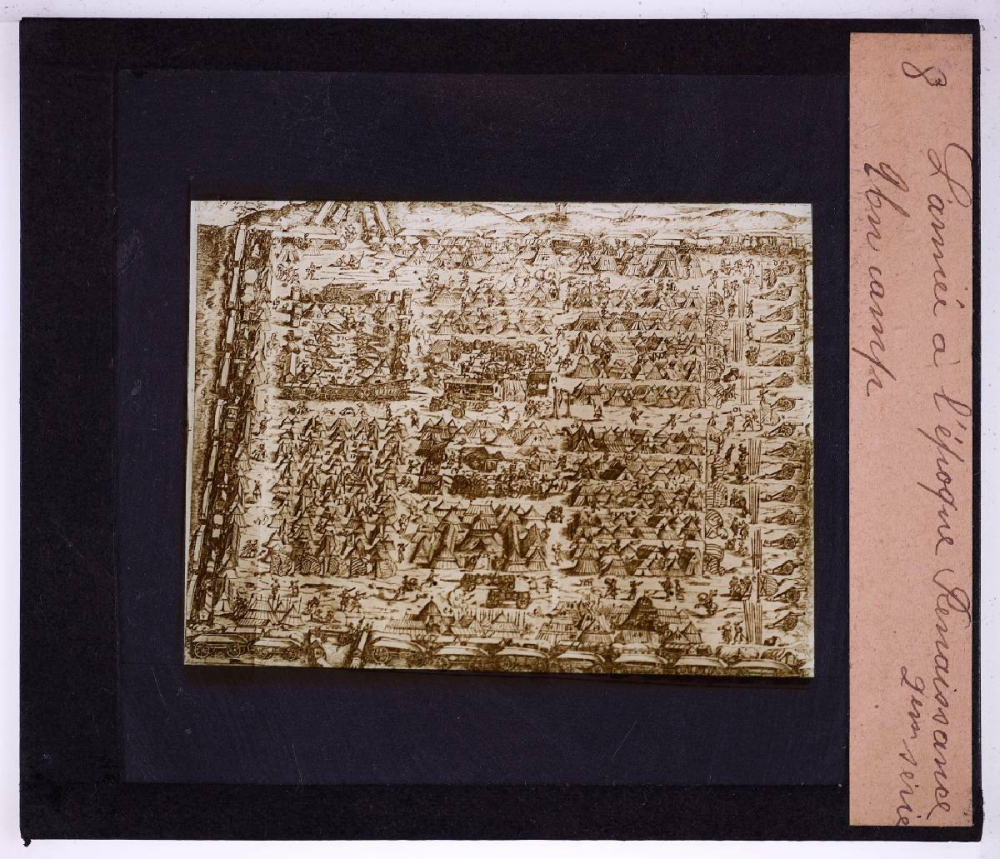 8 L'armée à l'époque Renaissance
Un camp 2ème série